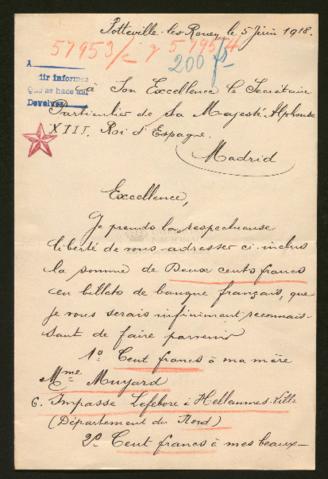 Sotteville-les-Rouen, le 5 Juin 1918.
57953/- y 57954
200 fs
A
dir informes
que se hace mal
Devolver
à Son Excellence le Secrétaire
Particulier de Sa Majesté Alphonse
XIII, Roi d'Espagne.
Madrid
Excellence,
Je prends la respectueuse
liberté de vous adresser ci-inclus
la somme de Deux cents francs
en billets de banque français, que
je vous serais infiniment reconnais-
sant de faire parvenir
1º Cent francs à ma mère
Mme Muyard
6. Impasse Lefebvre à Hellemmes-Lille
(Département du Nord)
2º Cent francs à mes beaux-